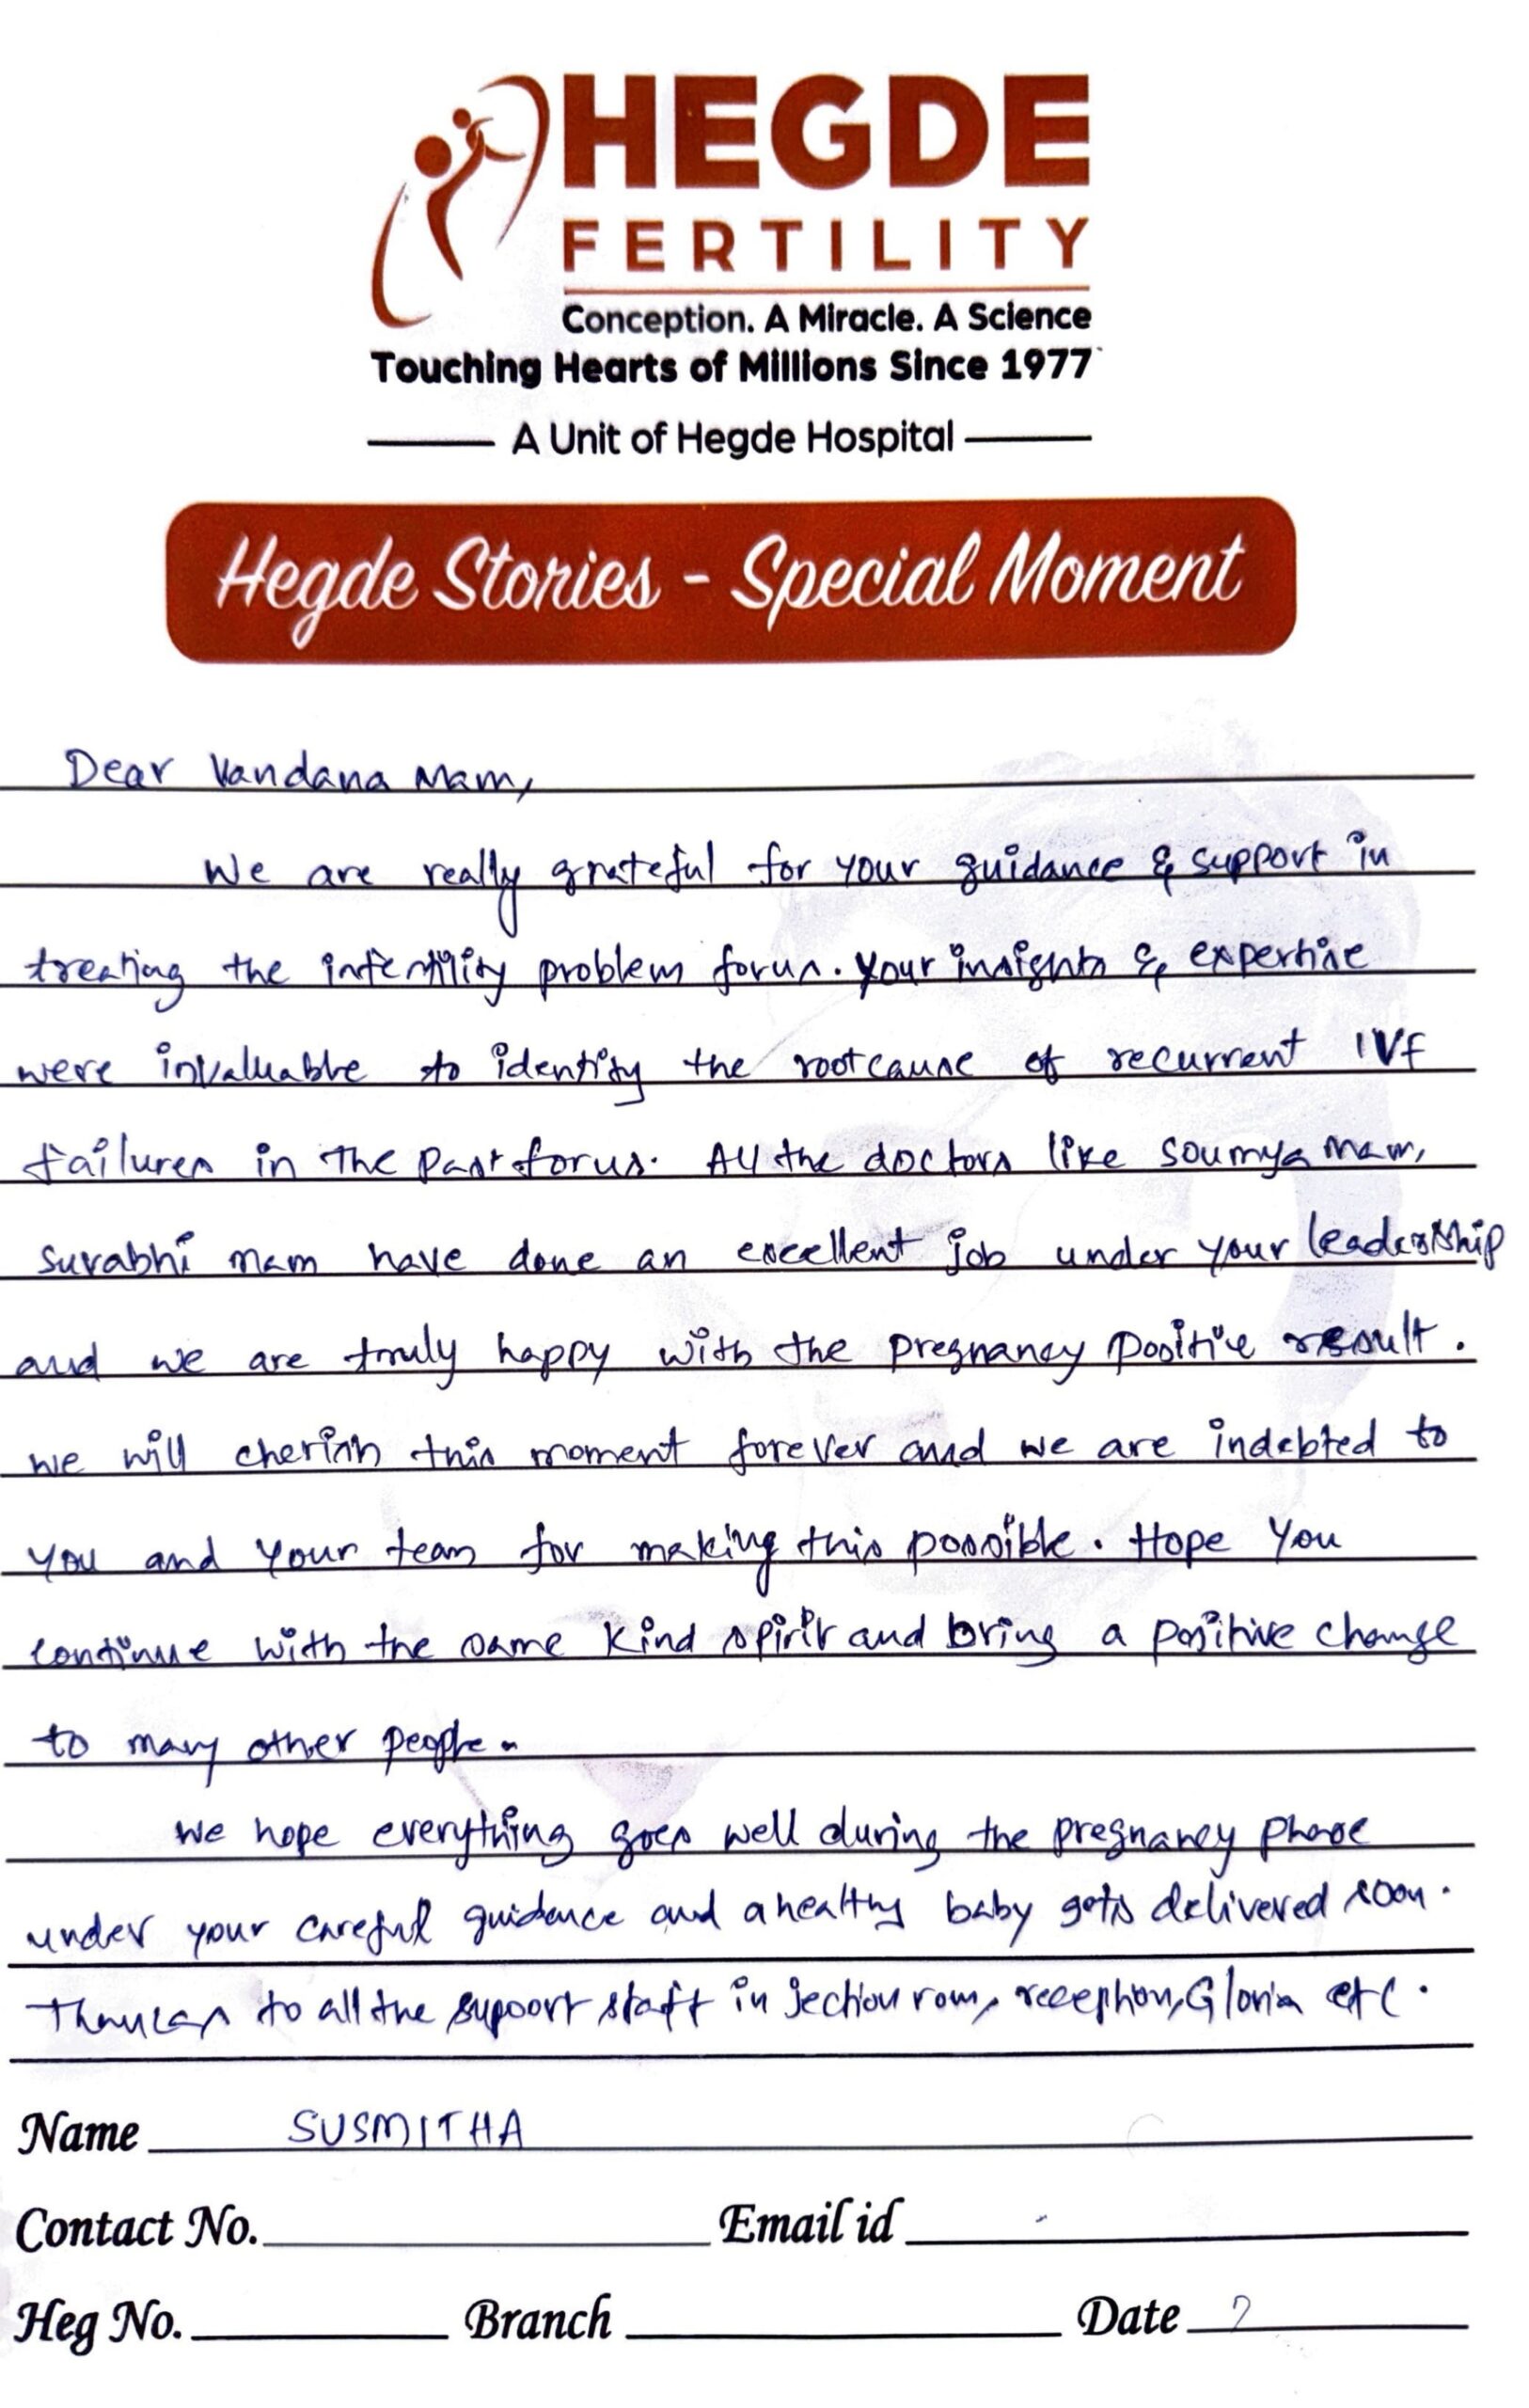 HEGDE
FERTILITY
Conception. A Miracle. A Science
Touching Hearts of Millions Since 1977
A Unit of Hegde Hospital
Hegde Stories - Special Moment
Dear Vandana Mam,
We are really grateful for your guidance & support in
treating the infertility problem for us. Your insights & expertise
were invaluable to identify the root cause of recurrent IVF
failures in the past for us. All the doctors like Soumya mam,
Surabhi mam have done an excellent job under your leadership
and we are truly happy with the pregnancy positive result.
We will cherish this moment forever and we are indebted to
you and your team for making this possible. Hope you
continue with the same kind spirit and bring a positive change
to many other people.
We hope everything goes well during the pregnancy phase
under your careful guidance and a healthy baby gets delivered soon.
Thanks to all the support staff injection room, reception, Gloria etc.
Name SUSMITHA
Contact No. Email id
Heg No. Branch Date 2